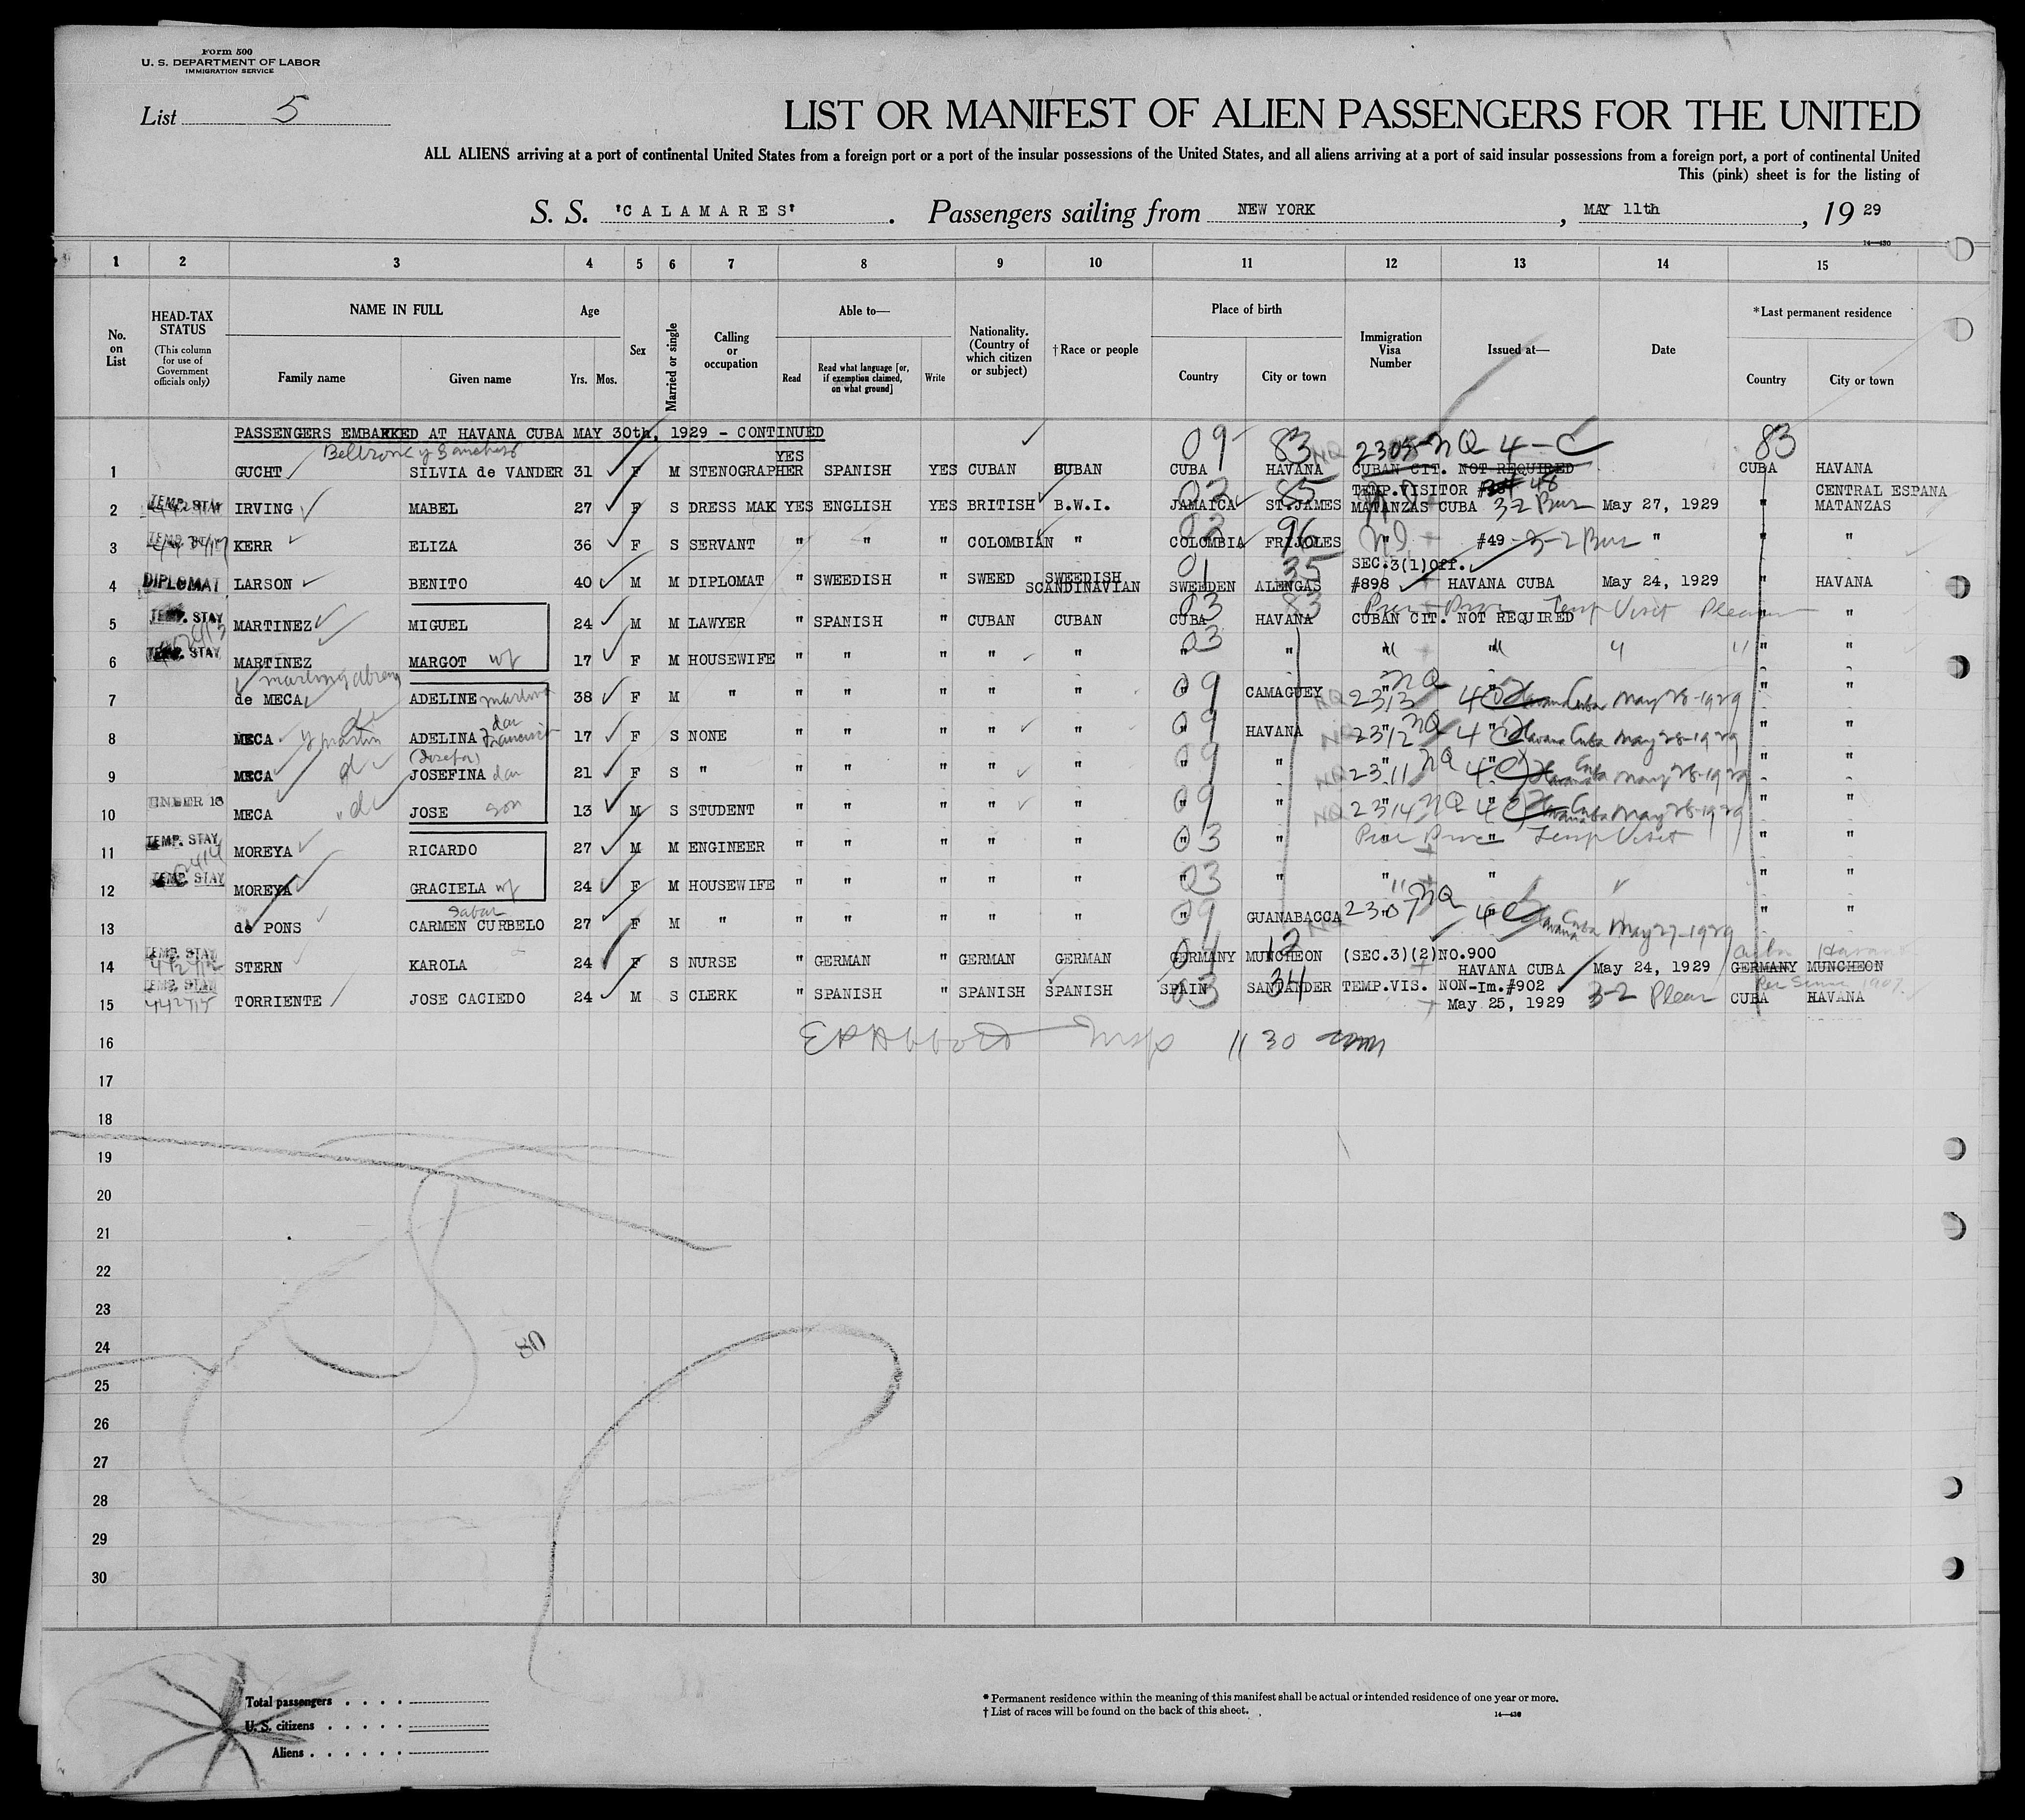 Form 500
U. S. DEPARTMENT OF LABOR
IMMIGRATION SERVICE
List 5
LIST OR MANIFEST OF ALIEN PASSENGERS FOR THE UNITED
ALL ALIENS arriving at a port of continental United States from a foreign port or a port of the insular possessions of the United States, and all aliens arriving at a port of said insular possessions from a foreign port, a port of continental United
This (pink) sheet is for the listing of
S. S. "CALAMARES" . Passengers sailing from NEW YORK , MAY 11th , 19 29
14—430
1 2 3 4 5 6 7 8 9 10 11 12 13 14 15
No. on List
HEAD-TAX STATUS (This column for use of Government officials only)
NAME IN FULL
Family name Given name
Age Yrs. Mos.
Sex
Married or single
Calling or occupation
Able to—
Read Read what language [or, if exemption claimed, on what ground] Write
Nationality. (Country of which citizen or subject)
†Race or people
Place of birth
Country City or town
Immigration Visa Number
Issued at—
Date
*Last permanent residence
Country City or town
PASSENGERS EMBARKED AT HAVANA CUBA MAY 30th, 1929 - CONTINUED
09 83 NQ 2305 NQ 4-C 83
Beltrone y Sanchez
1 GUCHT SILVIA de VANDER 31 F M STENOGRAPHER YES SPANISH YES CUBAN CUBAN CUBA HAVANA CUBAN CIT. NOT REQUIRED CUBA HAVANA
2 TEMP. STAY IRVING MABEL 27 F S DRESS MAK YES ENGLISH YES BRITISH B.W.I. JAMAICA ST.JAMES TEMP.VISITOR # 48 MATANZAS CUBA 3-2 Bus May 27, 1929 " CENTRAL ESPANA MATANZAS
3 KERR ELIZA 36 F S SERVANT " " " COLOMBIAN " COLOMBIA FRIJOLES " #49 3-2 Bus " " "
4 DIPLOMAT LARSON BENITO 40 M M DIPLOMAT " SWEDISH " SWEED SWEDISH SCANDINAVIAN SWEEDEN ALENGAS SEC.3(1)Off. #898 HAVANA CUBA May 24, 1929 " HAVANA
5 TEMP. STAY MARTINEZ MIGUEL 24 M M LAWYER " SPANISH " CUBAN CUBAN CUBA HAVANA CUBAN CIT. NOT REQUIRED Temp Visit " "
6 TEMP. STAY MARTINEZ MARGOT wf 17 F M HOUSEWIFE " " " " " " " " " " "
7 de MECA ADELINE 38 F M " " " " " " " CAMAGUEY 2313 NQ 4 C Havana Cuba May 28-1929 " "
8 MECA ADELINA dau Francisca 17 F S NONE " " " " " " HAVANA 2312 NQ 4 C Havana Cuba May 28-1929 " "
9 MECA de (Josefa) JOSEFINA dau 21 F S " " " " " " " " 2311 NQ 4 C Havana Cuba May 28-1929 " "
10 UNDER 16 MECA de JOSE son 13 M S STUDENT " " " " " " " 2314 NQ 4 C Havana Cuba May 28-1929 " "
11 TEMP. STAY MOREYA RICARDO 27 M M ENGINEER " " " " " " " Temp Visit " "
12 TEMP. STAY MOREYA GRACIELA wf 24 F M HOUSEWIFE " " " " " " " " " " "
13 de PONS CARMEN CURBELO 27 F M " " " " " " " GUANABACCA 2307 NQ 4 C Havana Cuba May 27-1929 " "
14 TEMP. STAY STERN KAROLA 24 F S NURSE " GERMAN " GERMAN GERMAN GERMANY MUNCHEON (SEC.3)(2)NO.900 HAVANA CUBA May 24, 1929 GERMANY MUNCHEON Cuba Havana
15 TEMP. STAY TORRIENTE JOSE CACIEDO 24 M S CLERK " SPANISH " SPANISH SPANISH SPAIN SANTANDER TEMP.VIS. NON-Im.#902 May 25, 1929 3-2 Pleas CUBA HAVANA
16 11 30 am
17
18
19
20
21
22
23
24
25
26
27
28
29
30
80
Total passengers . . . .
U. S. citizens . . . . .
Aliens . . . . . .
* Permanent residence within the meaning of this manifest shall be actual or intended residence of one year or more.
† List of races will be found on the back of this sheet.
14—430